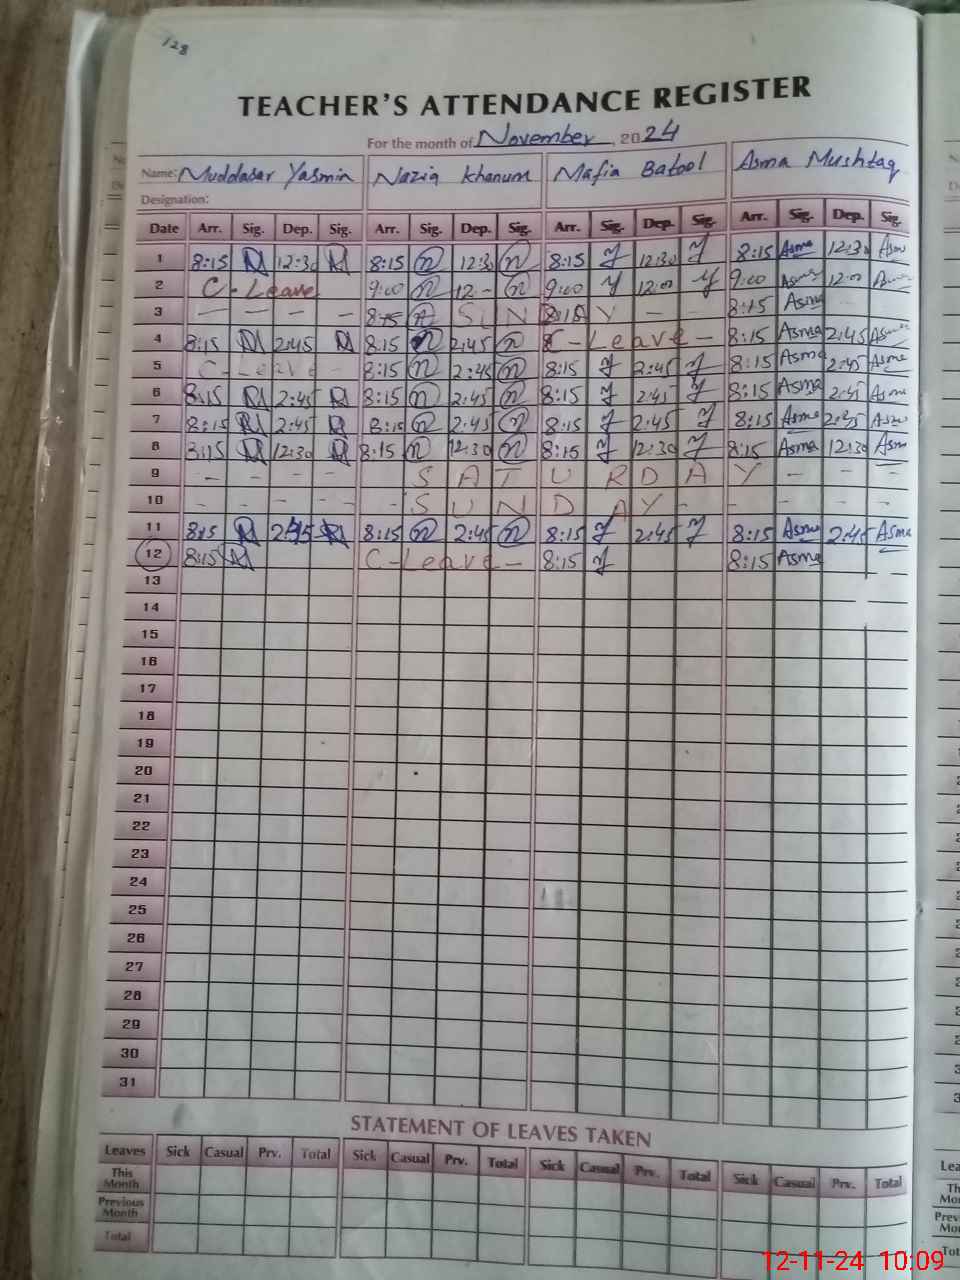 128
TEACHER'S ATTENDANCE REGISTER
For the month of November, 2024
Name: Muddasar Yasmin Nazia Khanum Mafia Batool Asma Mushtaq
Designation:
Date Arr. Sig. Dep. Sig. Arr. Sig. Dep. Sig. Arr. Sig. Dep. Sig. Arr. Sig. Dep. Sig.
1 8:15 M 12:30 M 8:15 n 12:30 n 8:15 y 12:30 y 8:15 Asma 12:30 Asm
2 C-Leave 9:00 n 12- n 9:00 y 12:00 y 9:00 Asma 12:00
3 - - - - 8:15 SUNDAY - - 8:15 Asma
4 8:15 M 2:45 M 8:15 n 2:45 n C-Leave- 8:15 Asma 2:45 Asma
5 C-Leave- 8:15 n 2:45 n 8:15 y 2:45 y 8:15 Asma 2:45 Asma
6 8:15 M 2:45 M 8:15 n 2:45 n 8:15 y 2:45 y 8:15 Asma 2:45 Asma
7 8:15 M 2:45 M 8:15 n 2:45 n 8:15 y 2:45 y 8:15 Asma 2:45 Asma
8 8:15 M 12:30 M 8:15 n 12:30 n 8:15 y 12:30 y 8:15 Asma 12:30 Asm
9 - - - - - SATURDAY - -
10 - - - - - SUNDAY - - - - -
11 8:15 M 2:45 M 8:15 n 2:45 n 8:15 y 2:45 y 8:15 Asma 2:45 Asma
12 8:15 M C-Leave- 8:15 y 8:15 Asma
13
14
15
16
17
18
19
20
21
22
23
24
25
26
27
28
29
30
31
STATEMENT OF LEAVES TAKEN
Leaves Sick Casual Prv. Total Sick Casual Prv. Total Sick Casual Prv. Total Sick Casual Prv. Total
This Month
Previous Month
Total
12-11-24 10:09